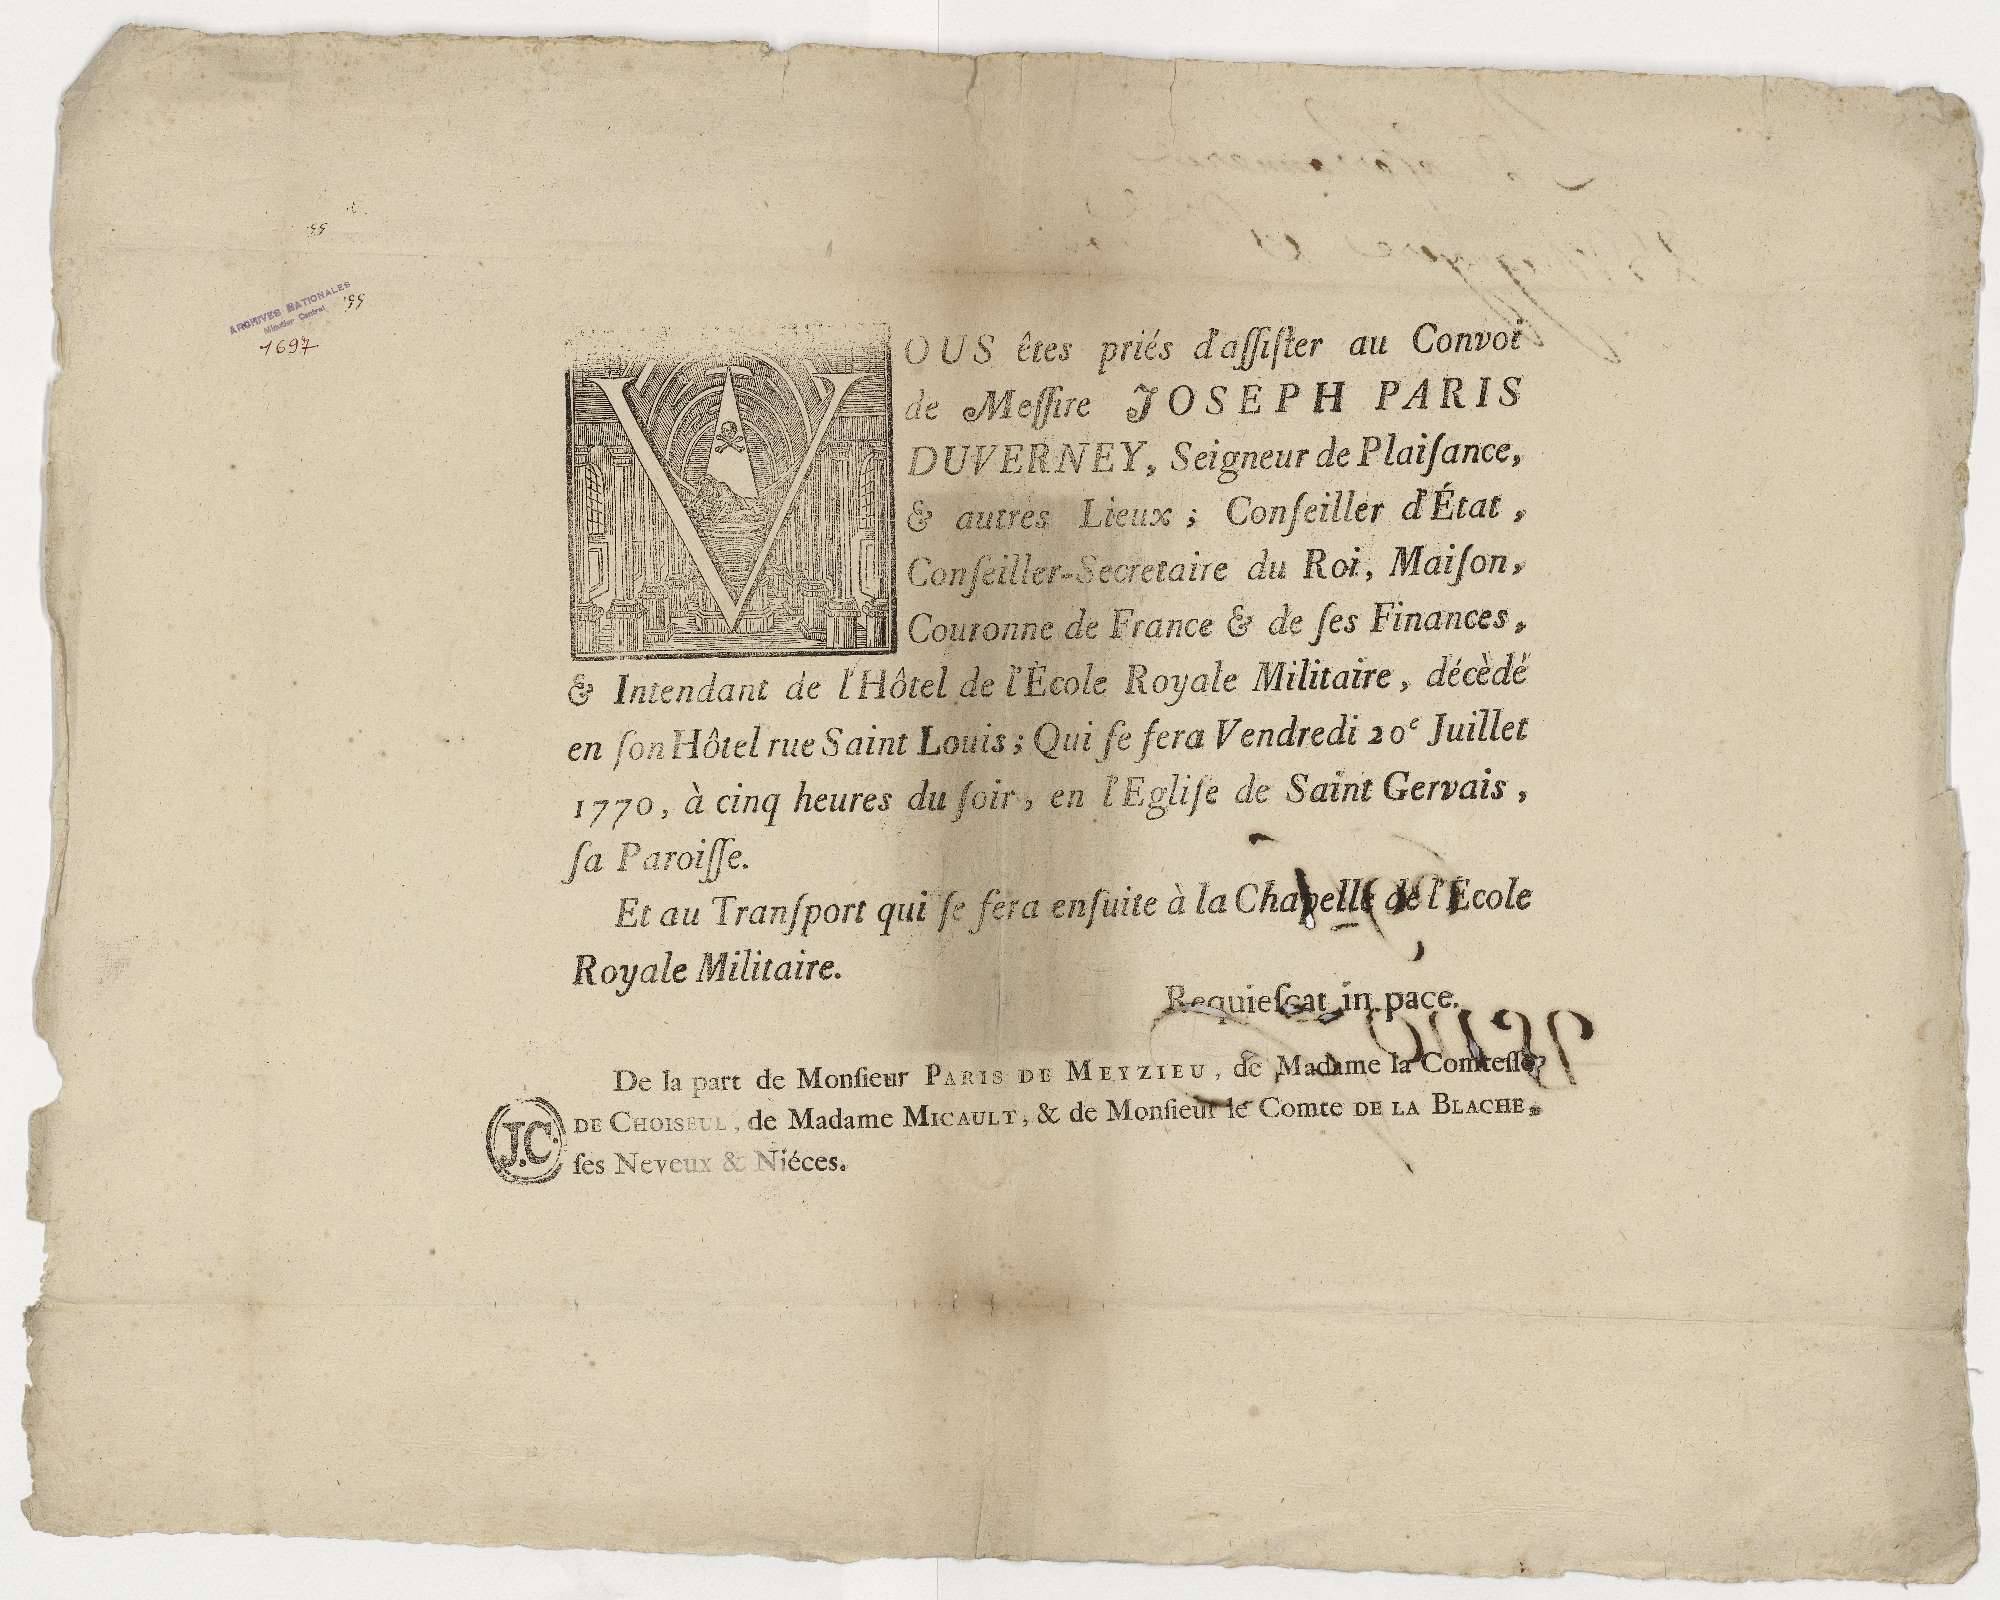 ARCHIVES NATIONALES
Minutier Central
1697
VOUS êtes priés d'aſſiſter au Convoi
de Meſſire JOSEPH PARIS
DUVERNEY, Seigneur de Plaiſance,
& autres Lieux ; Conſeiller d'État ,
Conſeiller-Secretaire du Roi, Maiſon,
Couronne de France & de ſes Finances,
& Intendant de l'Hôtel de l'École Royale Militaire, décèdé
en ſon Hôtel rue Saint Louis ; Qui ſe fera Vendredi 20e Juillet
1770, à cinq heures du ſoir, en l'Egliſe de Saint Gervais,
ſa Paroiſſe.
Et au Tranſport qui ſe fera enſuite à la Chapelle de l'Ecole
Royale Militaire.
Requieſcat in pace.
De la part de Monſieur PARIS DE MEYZIEU, de Madame la Comteſſe
DE CHOISEUL, de Madame MICAULT, & de Monſieur le Comte DE LA BLACHE,
J.C.
ſes Neveux & Niéces.